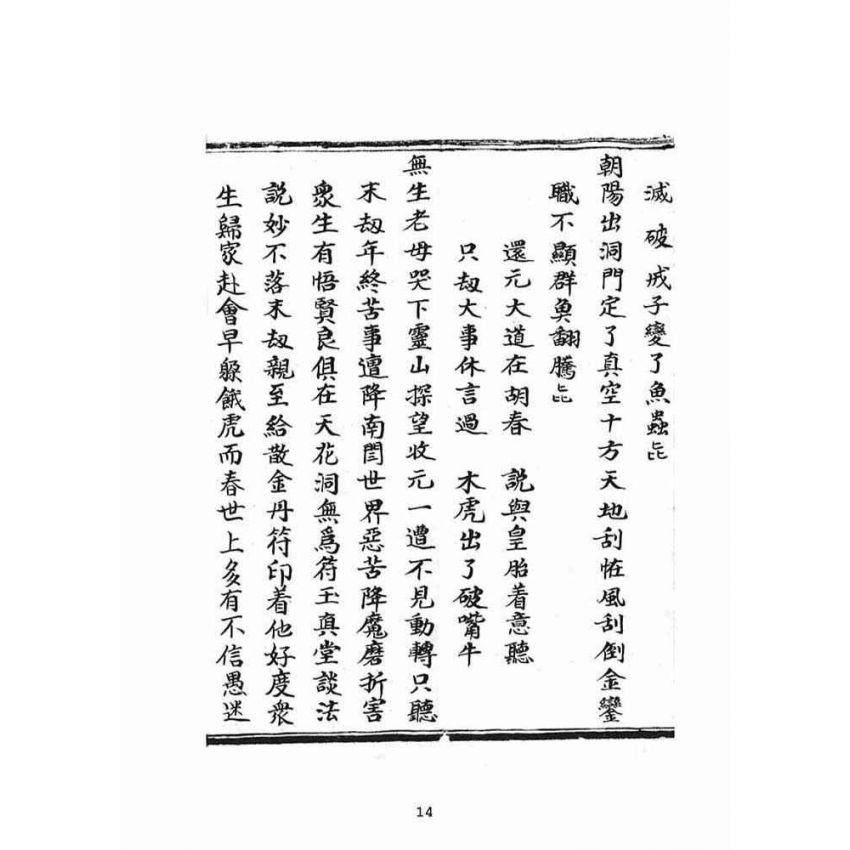 滅破戒子變了魚蟲㐂
朝陽出洞門定了真空十方天地刮恠風刮倒金鑾
職不顯群奠翻騰㐂
還元大道在胡春 說與皇胎着意聽
只劫大事休言過 木虎出了破嘴牛
無生老母哭下靈山探望收元一遭不見動轉只聽
末劫年終苦事遭降南閻世界惡苦降魔磨折害
衆生有悟賢良俱在天花洞無爲符玉真堂談法
說妙不落末劫親至給散金丹符印着他好度衆
生歸家赴會早躱餓虎而春世上多有不信愚迷
14